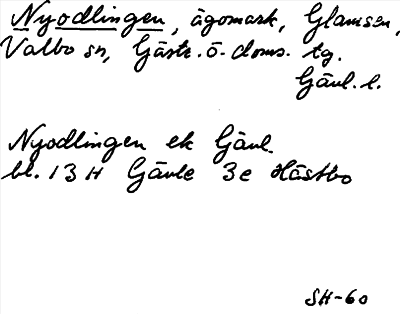 Nyodlingen, ägomark, Glamsen,
Valbo sn, Gästr. ö. doms. tg.
Gävl. l.
Nyodlingen ek Gävl.
bl. 13 H Gävle 3e Hästbo
SH-60